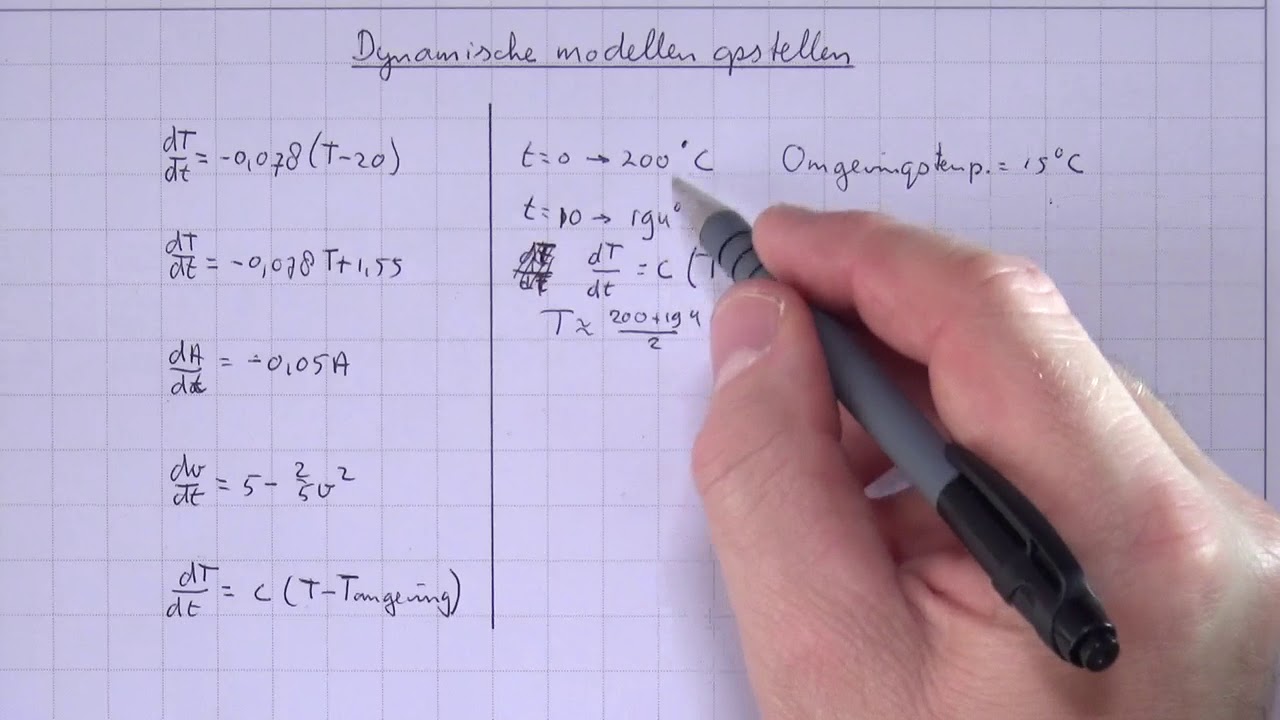 Dynamische modellen opstellen
dT/dt = -0,078 (T-20)
dT/dt = -0,078 T+1,55
dA/dt = -0,05A
dv/dt = 5 - 2/5 v²
dT/dt = c (T-Tomgeving)
t=0 → 200°C
Omgevingstemp. = 15°C
t=10 → 194°
dT/dt = c (T
T ≈ 200+194/2